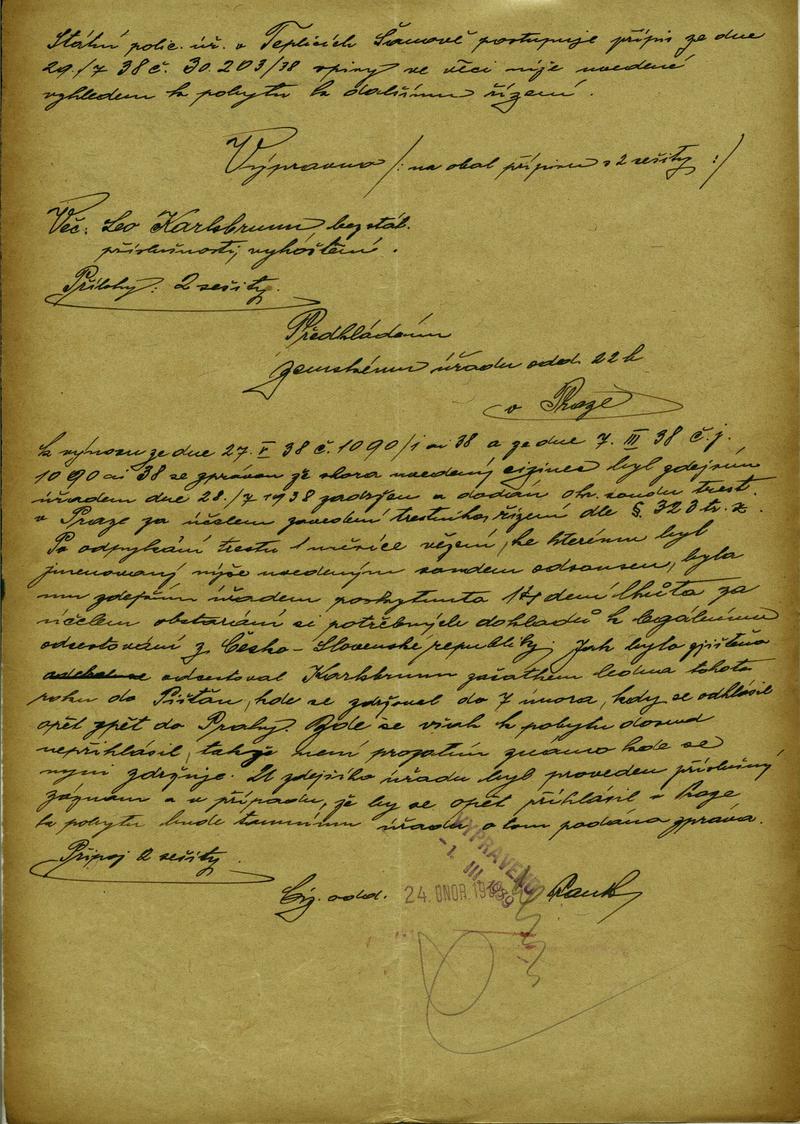 Státní polic. úř. v Teplicích Šanově postupuje přípis ze dne
29./7 38 č. 30.203/38 spisy ve věci níže uvedené
vzhledem k pobytu k dalšímu řízení.
Výpravna /: na obal přípisu s 2 sešity :/
Věc: Leo Karlsbrunn, bez stát.
příslušnosti, vyhoštění.
Přílohy: 2 sešity.
Předkládám
zemskému úřadu odd. 22 h
v Praze
k výnosu ze dne 27. V 38 č. 1090/1 ai 38 a ze dne 7. III 38 č.j.
1090 ai 38 se zprávou že shora uvedený cizinec byl zdejším
úřadem dne 28./7 1938 zadržen a dodán okr. soudu trest.
v Praze za účelem zavedení trestního řízení dle § 323 tr. z.
Po odpykání trestu 1 měsíce vězení, ke kterému byl
jmenovaný výše uvedeným soudem odsouzen, byla
mu zdejším úřadem poskytnuta denní lhůta za
účelem obstarání si potřebných dokladů k legálnímu
odcestování z Česko-Slovenské republiky. Jak bylo zjištěno
odcestoval Karlsbrunn začátkem ledna tohoto
roku do Píšťan, kde se zdržoval do 7 února, kdy se odhlásil
opět zpět do Prahy. Zde se však k pobytu dosud
nepřihlásil, takže není prozatím známo kde se
nyní zdržuje. U zdejšího úřadu byl proveden příslušný
záznam a v případu, že by se opět přihlásil v Praze
k pobytu bude tamnímu úřadu o tom podána zpráva.
Připoj 2 sešity.
Ciz. odd. 24. ÚNOR 1939
VYPRAVENO
-1. III. 1939